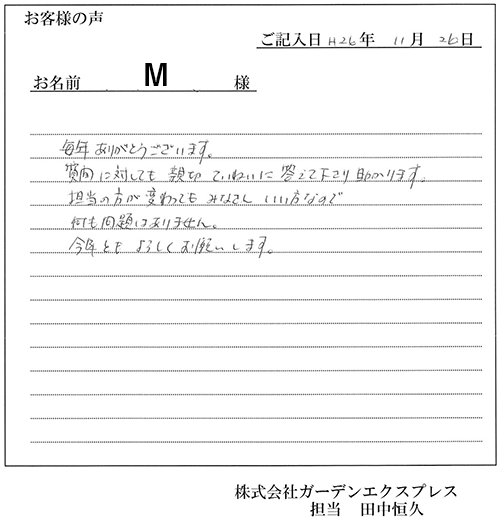 お客様の声
ご記入日 H26年 11月 26日
お名前 M 様
毎年ありがとうございます。
質問に対しても 親切 ていねいに 答えて下さり 助かります。
担当の方が変わっても みなさん いい方なので
何も問題はありません。
今年とも よろしくお願いします。
株式会社ガーデンエクスプレス
担当 田中恒久